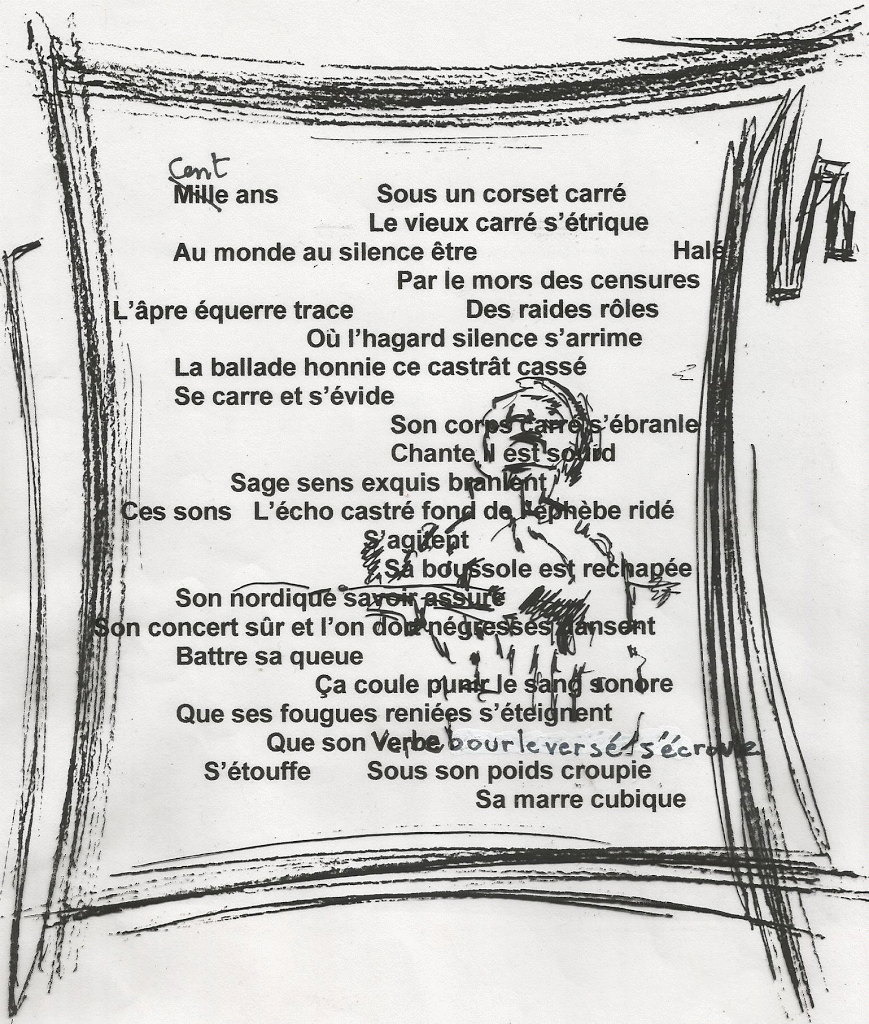 Cent
Mille ans Sous un corset carré
Le vieux carré s'étrique
Au monde au silence être Halé
Par le mors des censures
L'âpre équerre trace Des raides rôles
Où l'hagard silence s'arrime
La ballade honnie ce castrât cassé
Se carre et s'évide
Son corps carré s'ébranle
Chante il est sourd
Sage sens exquis branlent
Ces sons L'écho castré fond de l'éphèbe ridé
S'agitent
Sa boussole est rechapée
Son nordique savoir assuré
Son concert sûr et l'on dort négressés dansent
Battre sa queue
Ça coule punir le sang sonore
Que ses fougues reniées s'éteignent
Que son Verbe bourleversé s'écroule
S'étouffe Sous son poids croupie
Sa marre cubique